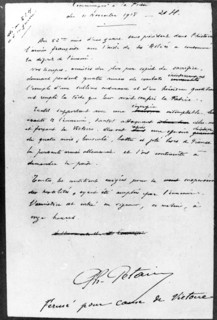 Communiqué à la Presse
du 11 Novembre 1918 — 21 H.
Au 52ème mois d'une guerre sans précédent dans l'histoire
l'armée française avec l'aide de ses Alliés a consommé
la défaite de l'ennemi.
Nos troupes, animées du plus pur esprit de sacrifice,
donnant pendant quatre années de combats
l'exemple d'une sublime endurance et d'un héroïsme quotidien
ont rempli la tâche que leur avait confiée la Patrie.
Tantôt supportant
assauts de l'ennemi, tantôt attaquant elles-mêmes
et forçant la Victoire, elles ont
de quatre mois, bousculé, battu et jeté hors de France
la puissante armée allemande et l'ont contrainte à
demander la paix.
Toutes les conditions exigées pour la suspension
des hostilités, ayant été acceptées par l'ennemi,
l'armistice est entré en vigueur, ce matin, à
onze heures
Ph. Pétain
Fermé pour cause de Victoire